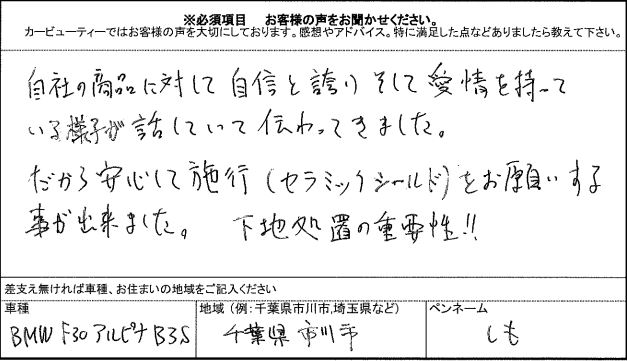 ※必須項目　お客様の声をお聞かせください。
カービューティーではお客様の声を大切にしております。感想やアドバイス。特に満足した点などありましたら教えて下さい。
自社の商品に対して自信と誇り そして愛情を持って
いる様子が話していて伝わってきました。
だから安心して施行(セラミックシールド)をお願いする
事が出来ました。 下地処置の重要性!!
差支え無ければ車種、お住まいの地域をご記入ください
車種 地域（例：千葉県市川市,埼玉県など） ペンネーム
BMW F30 アルピナ B3S 千葉県 市川市 しも